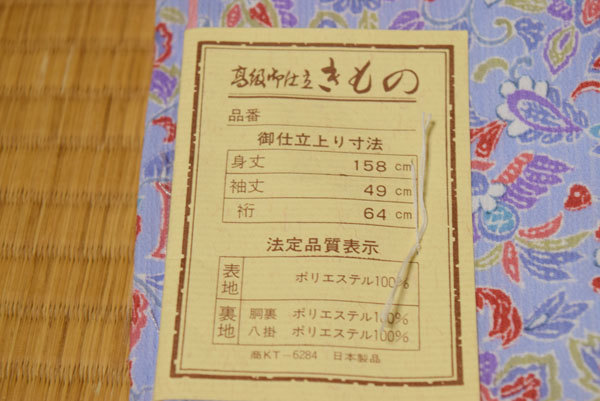 高級御仕立きもの
品番
御仕立上り寸法
身丈 158 cm
袖丈 49 cm
裄 64 cm
法定品質表示
表地 ポリエステル100%
裏地 胴裏 ポリエステル100%
八掛 ポリエステル100%
商KT-6284 日本製品